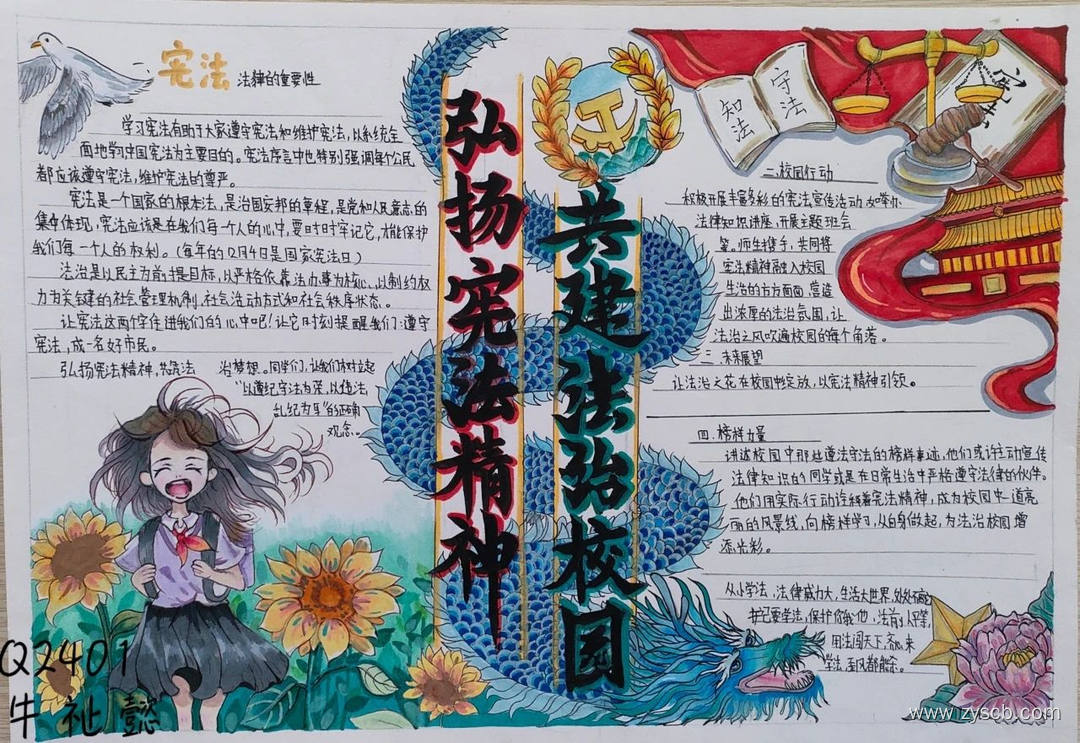 宪法 法律的重要性
学习宪法有助于大家遵守宪法和维护宪法，以系统全
面地学习中国宪法为主要目的。宪法序言中也特别强调每个公民
都应该遵守宪法，维护宪法的尊严。
宪法是一个国家的根本法，是治国安邦的章程，是党和人民意志的
集中体现，宪法应该是在我们每一个人的心中，要时时牢记它，才能保护
我们每一个人的权利。（每年的12月4日是国家宪法日）
法治是以民主为前提目标，以严格依靠法办事为核心，以制约权
力为关键的社会管理机制、社会活动方式和社会秩序状态。
让宪法这两个字住进我们的心中吧！让它时刻提醒我们：遵守
宪法，成一名好市民。
弘扬宪法精神，共筑法 治梦想。同学们，让我们树立起
“以遵纪守法为荣，以违法
乱纪为耻”的正确
观念。
弘扬宪法精神
共建法治校园
知法
守法
二.校园行动
积极开展丰富多彩的宪法宣传活动，如举办
法律知识讲座，开展主题班会
等。师生携手，共同将
宪法精神融入校园
生活的方方面面，营造
出浓厚的法治氛围，让
法治之风吹遍校园的每个角落。
三.未来展望
让法治之花在校园中绽放，以宪法精神引领。
四.榜样力量
讲述校园中那些遵法守法的榜样事迹，他们或许主动宣传
法律知识的同学或是在日常生活中严格遵守法律的伙伴。
他们用实际行动诠释着宪法精神，成为校园中一道亮
丽的风景线，向榜样学习，从自身做起，为法治校园增
添光彩。
从小学法，法律威力大，生活大世界，处处
要学法，保护你我他，法前人平等，
用法闯天下，齐心来
学法，
Q2401
牛祉懿
www.lzyscb.com